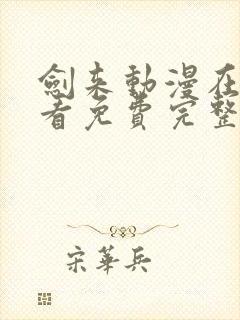 劍来動漫在
看免費完整
宋華兵